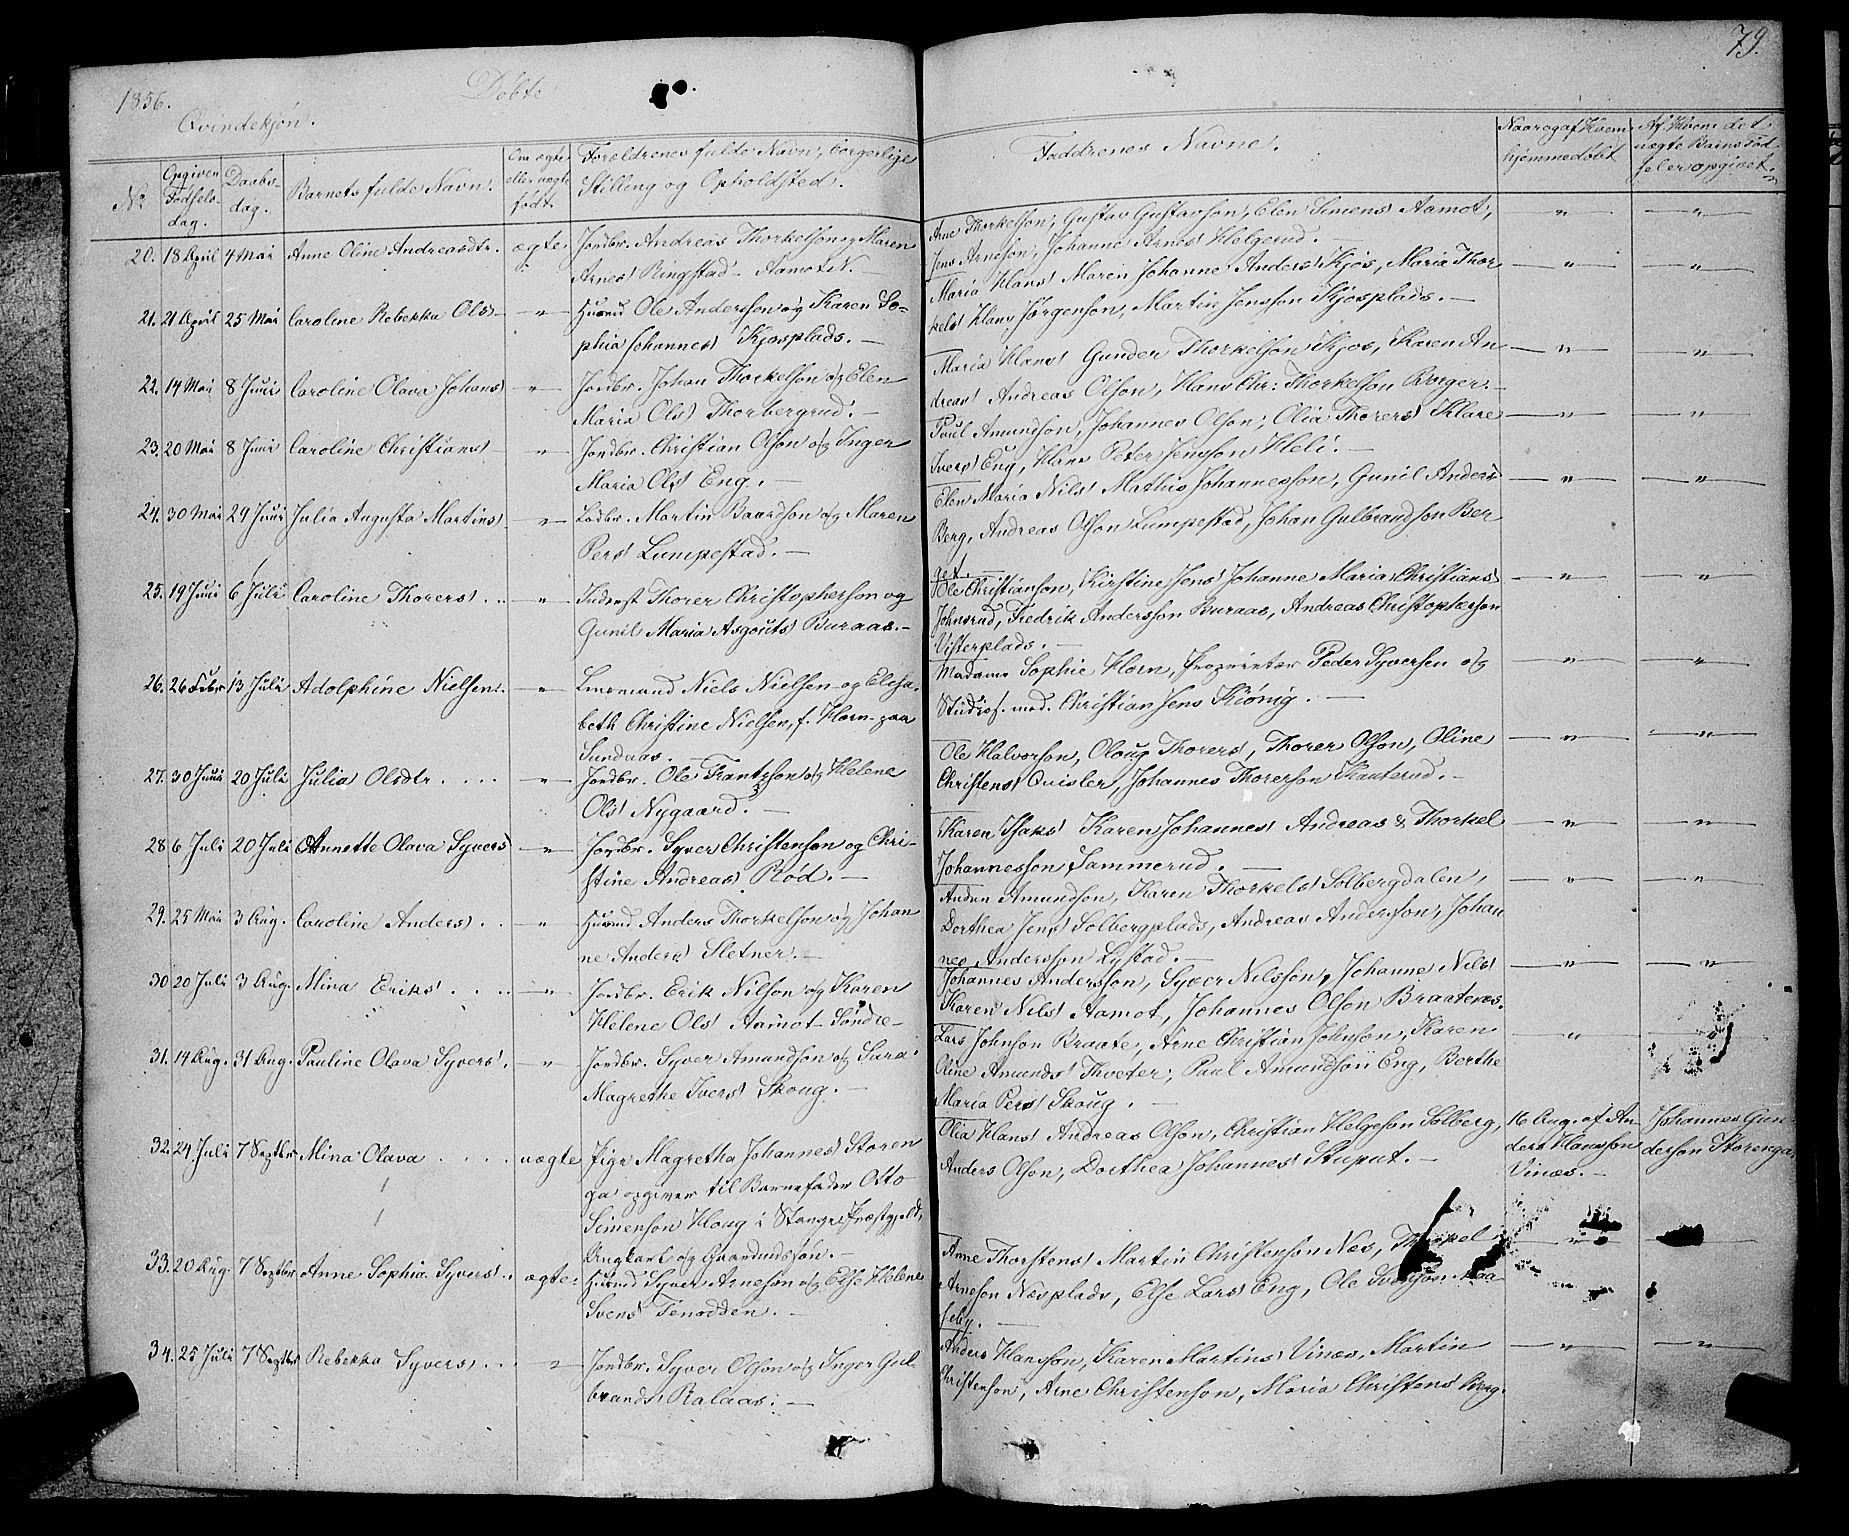 1856.
Døbte
79.
Qvindekjøn.
No
Opgiven Fødselsdag.
Daabsdag.
Barnets fulde Navn.
Om ægte eller uægte født.
Forældrenes fulde Navn, borgerlige
Stilling og Opholdsted.
Faddrenes Navne.
Naar og af Hvem
hjemmedøbt
Af Hvem det
uægte Barns Fød-
sel er opgivet.
20. 18 April 4 Mai Anne Oline Andreasdtr. ægte Jordbr. Andreas Thorkelson og Maren
Arnes Ringstad - Aamot N. —
Arne Thorkelson, Gustav Gustavson, Elen Simens Aamot,
Jens Arneson, Johanne Arnes Helgerud. —
21. 21 April 25 Mai Caroline Rebekka Ols — " — Huusmd Ole Andersson og Karen So-
phia Johannes Kjosplads. —
Maria Hans Maren Johanne Anders Kjos, Maria Thor
kels Hans Jørgenson, Martin Jensson Kjosplads. —
22. 14 Mai 8 Juni Caroline Olava Johans " Jordbr. Johan Thorkelson og Elen
Maria Ols Thorbergrud. —
Maria Hans Gunder Thorkelson Kjos, Karen An
dreas Andreas Olson, Hans Chr: Thorkelson Berger. —
23. 20 Mai 8 Juni Caroline Christians — " — Jordbr. Christian Olson og Inger
Maria Ols Eng. —
Paul Amundson, Johannes Olson, Olia Thorers Klare
Ivers Eng, Hans Peter Jensson Heli. —
24. 30 Mai 29 Juni Julia Augusta Martins — " — Lodbr. Martin Baardson og Maren
Pers Lumpestad. —
Elen Maria Nils Mathis Johannesson, Gunil Anders
Berg, Andreas Olson Lumpestad, Johan Gulbrandson Ber
get. —
25. 19 Juni 6 Juli Caroline Thorers . . — " — Inderst Thorer Christopherson og
Gunil Maria Asgouts Buraas. —
Ole Christianson, Kirstine Jens Johanne Maria Christians
Johnsrud, Fredrik Andersson Buraas, Andreas Christopherson
Visterplads. —
26. 26 Febr 13 Juli Adolphine Nielsen. — " — Niels Nielsen og Elisa-
beth Christine Nielsen, f. Horn paa
Sundaas.
Madame Sophie Horn, Proprietær Peder Syversen og
Studios. med. Christian Jens Kiönig. —
27. 30 Juni 20 Juli Julia Olsdtr. . . . . — " — Jordbr. Ole Frantzson og Helene
Ols Nygaard. —
Ole Halvorson, Oloug Thorers, Thorer Olson, Oline
Christens Quisler, Johannes Thorerson Kauterud. —
28 6 Juli 20 Juli Annette Olava Syvers — " — Jordbr. Syver Christenson og Chri-
stine Andreas Rød. —
Karen Isaks Karen Johannes Andreas & Thorkel
Johannesson Sammerud. —
29. 25 Mai 3 Aug. Caroline Anders . . — " — Huusmd Anders Thorkelson og Johan
ne Anders Sletner. —
Amundson, Karen Thorkels Solbergdalen,
Dorthea Jens Solbergplads, Andreas Andersson, Johan
nes Andersson Lystad. —
30 20 Juli 3 Aug. Mina Eriks . . . . — " — Jordbr. Erik Nilson og Karen
Helene Ols Aamot Søndre —
Johannes Andersson, Syver Nilsson, Johanne Nils
Karen Nils Aamot, Johannes Olson Braatenes.
31. 14 Aug. 31 Aug. Pauline Olava Syvers . — " — Jordbr. Syver Amundson og Sara
Magrethe Ivers Skoug. —
Lars Johnson Braate, Arne Christian Johnson, Karen
Oline Amunds Thveter, Paul Amundson Eng, Berthe
Maria Pers Skoug. —
32. 24 Juli 7 Septbr Mina Olava . . . . uægte Pige Magretha Johannes Storen
ga opgiver til Barnefader Otto
Simenson Houg i Stange Præstegjeld,
Ungkarl og Gaardmdssøn. —
Olia Hans Andreas Olson, Christian Helgeson Solberg,
Anders Olson, Dorthea Johannes Stuput. —
16 Aug. af An
ders Hansson
Vinæs. —
Johannes Gun-
derson Storenga.
33. 20 Aug. 7 Septbr Anne Sophia Syvers . . ægte Huusmd Syver Arneson og Else Helene
Svens Tenodden. —
Anne Thorstens Martin Christenson Næs, Thorkel
Arneson Næsplads, Else Lars Eng, Ole
seby. —
34. 25 Juli 7 Septbr Rebekka Syvers . . . " Jordbr. Syver Olson og Inger Gul
brands Ralaas. —
Anders Hansson, Karen Martins Vinæs, Martin
Christenson, Arne Christenson, Maria Christens Berg.